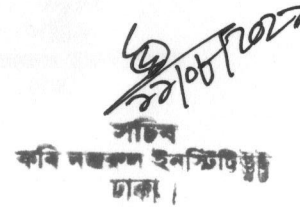 ২২/০৮/২০২২
সচিব
কবি নজরুল ইনস্টিটিউট
ঢাকা।